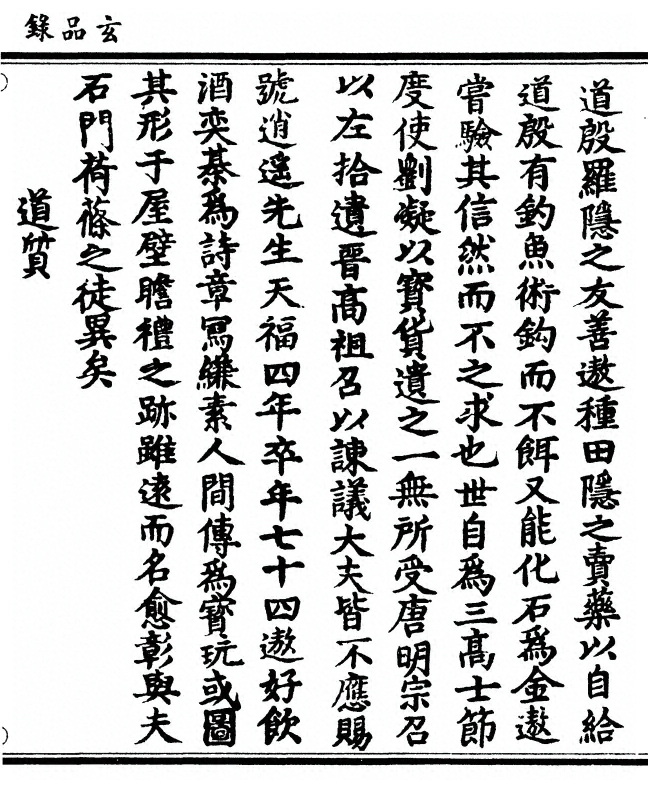 玄品錄
道殷羅隱之友善遨種田隱之賣藥以自給
道殷有釣魚術鈎而不餌又能化石爲金遨
嘗驗其信然而不之求也世自爲三高士節
度使劉凝以寳貨遺之一無所受唐明宗召
以左拾遺晋高祖召以諫議大夫皆不應賜
號逍遥先生天福四年卒年七十四遨好飲
酒奕棊爲詩章冩縑素人間傳爲寳玩或圖
其形于屋壁瞻禮之跡雖逺而名愈彰與夫
石門荷蓧之徒異矣
道質